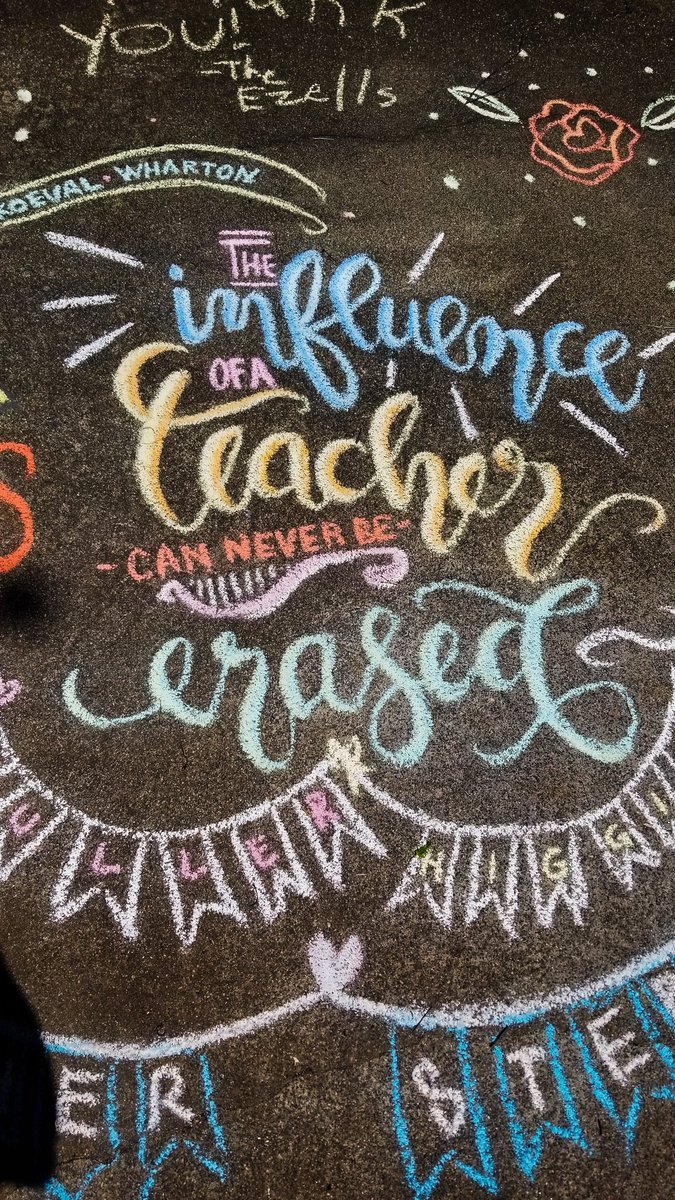 YOU!
-The
Ezells
KOEVAL·WHARTON
THE
influence
OF A
teacher
S
-CAN NEVER BE-
erased
ULLER HIGGI
ER STE